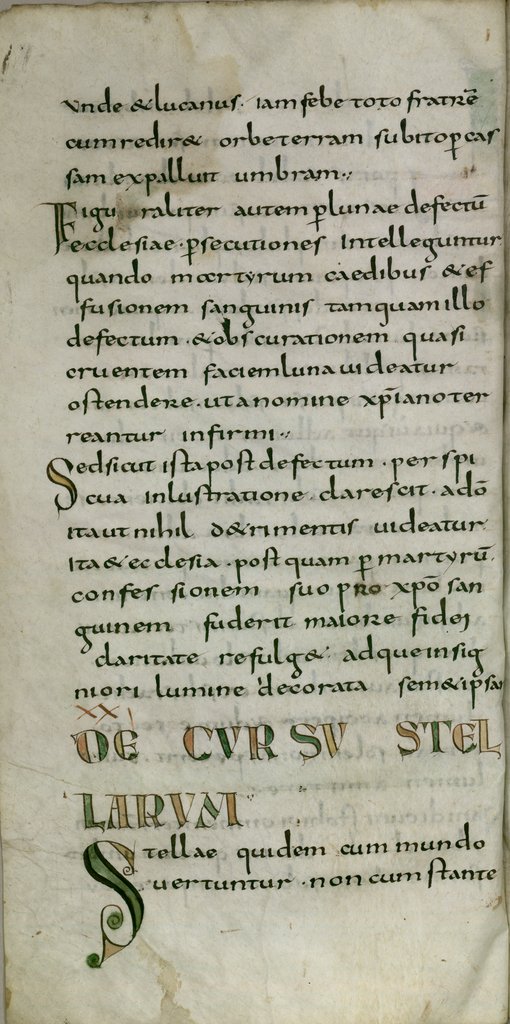 vnde &lucanus· iam febe toto fratrē
cum redir& orbe terram subito ꝑcas
sam expalluit umbram·,
Figu raliter autem ꝑ lunae defectū
ecclesiae· ꝑsecutiones Intelleguntur
quando martyrum caedibus & ef
fusionem sanguinis tamquam illo
defectum· & obscurationem quasi
cruentem faciem luna uideatur
ostendere· ut a nomine xp̄iano ter
reantur infirmi·,
Sed sicut ista post defectum· perspi
cua inlustratione clarescit· adō
ita ut nihil d&rimentis uideatur·
Ita & ecclesia· post quam ꝑ martyrū
confes sionem suo pro xp̄o san
guinem fuderit maiore fidei
claritate refulg&· adque insig
niori lumine decorata sem&ipsa
XXI
DE CURSU STEL
LARUM
Stellae quidem cum mundo
uertuntur· non cum stante